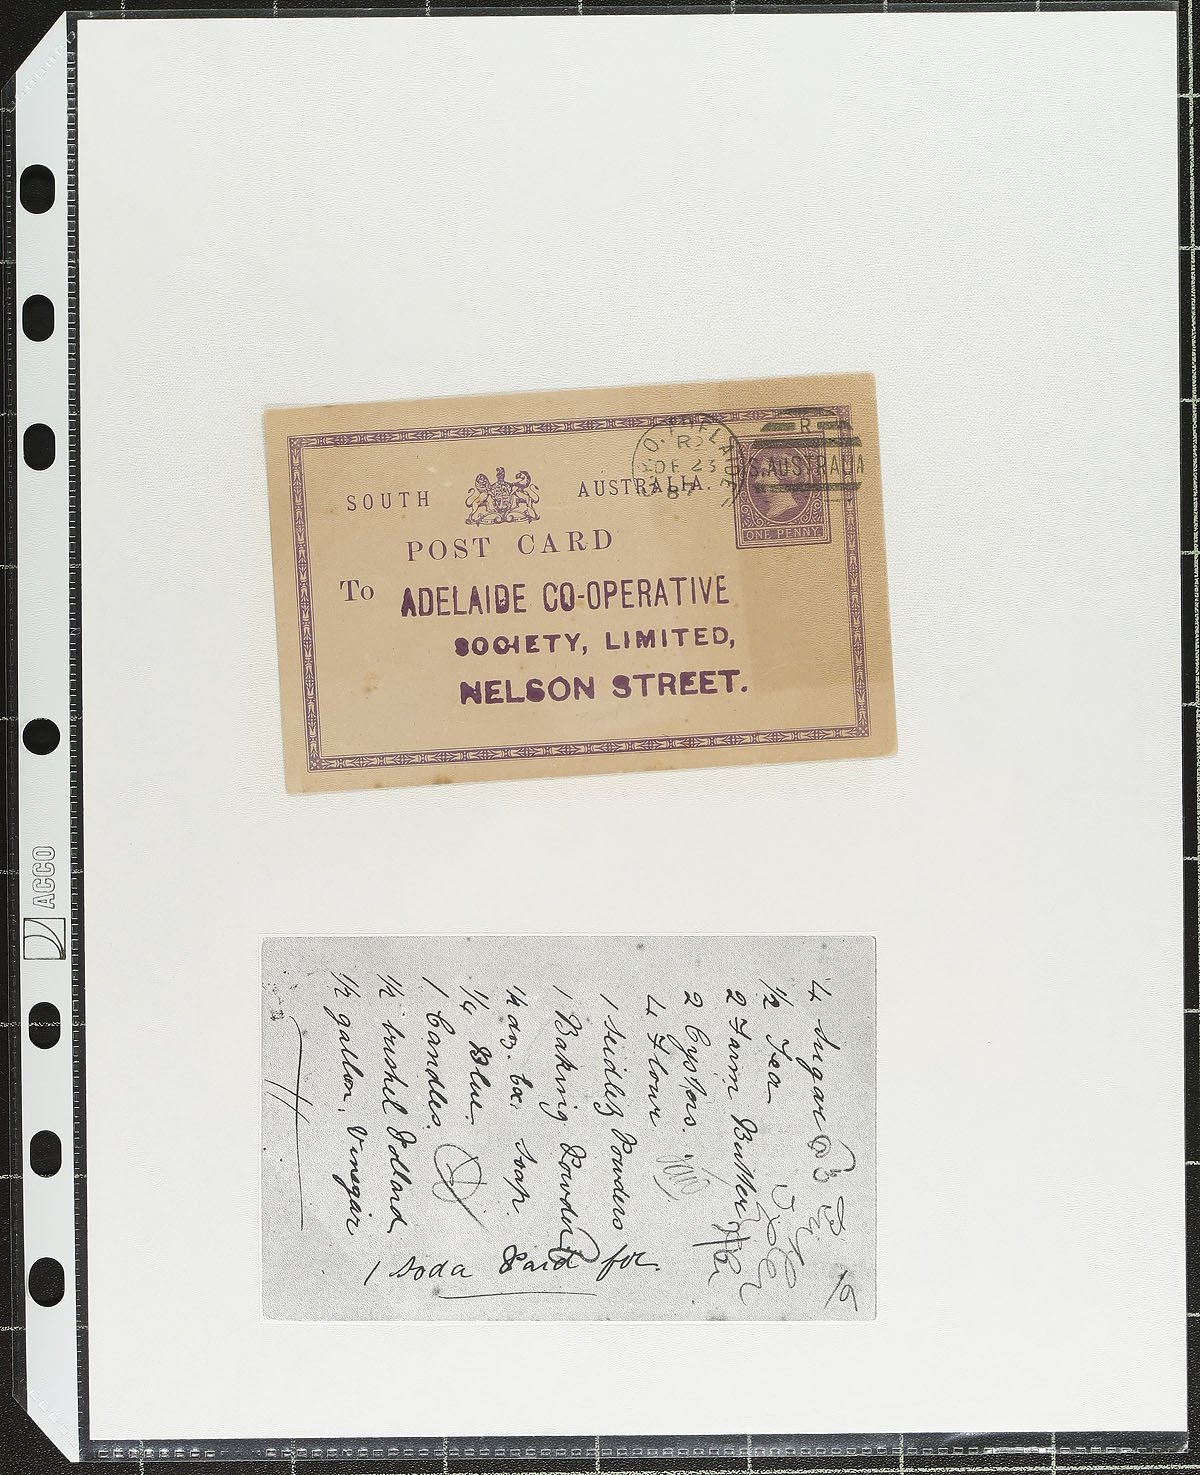 SOUTH AUSTRALIA.
POST CARD
To ADELAIDE CO-OPERATIVE
SOCIETY, LIMITED,
NELSON STREET.
G.P.O. ADELAIDE
DE 23
87
R
S.AUSTRALIA
ONE PENNY.
4 Sugar
½ Tea
2 Farm Butter
2 Oysters.
4 Flour
1 Seidlitz Powders
1 Baking Powder
¼ doz. box. Soap.
¼ Blue.
1 Candles.
½ bushel Pollard
½ gallon. Vinegar
1 Soda Paid for.
ACCO